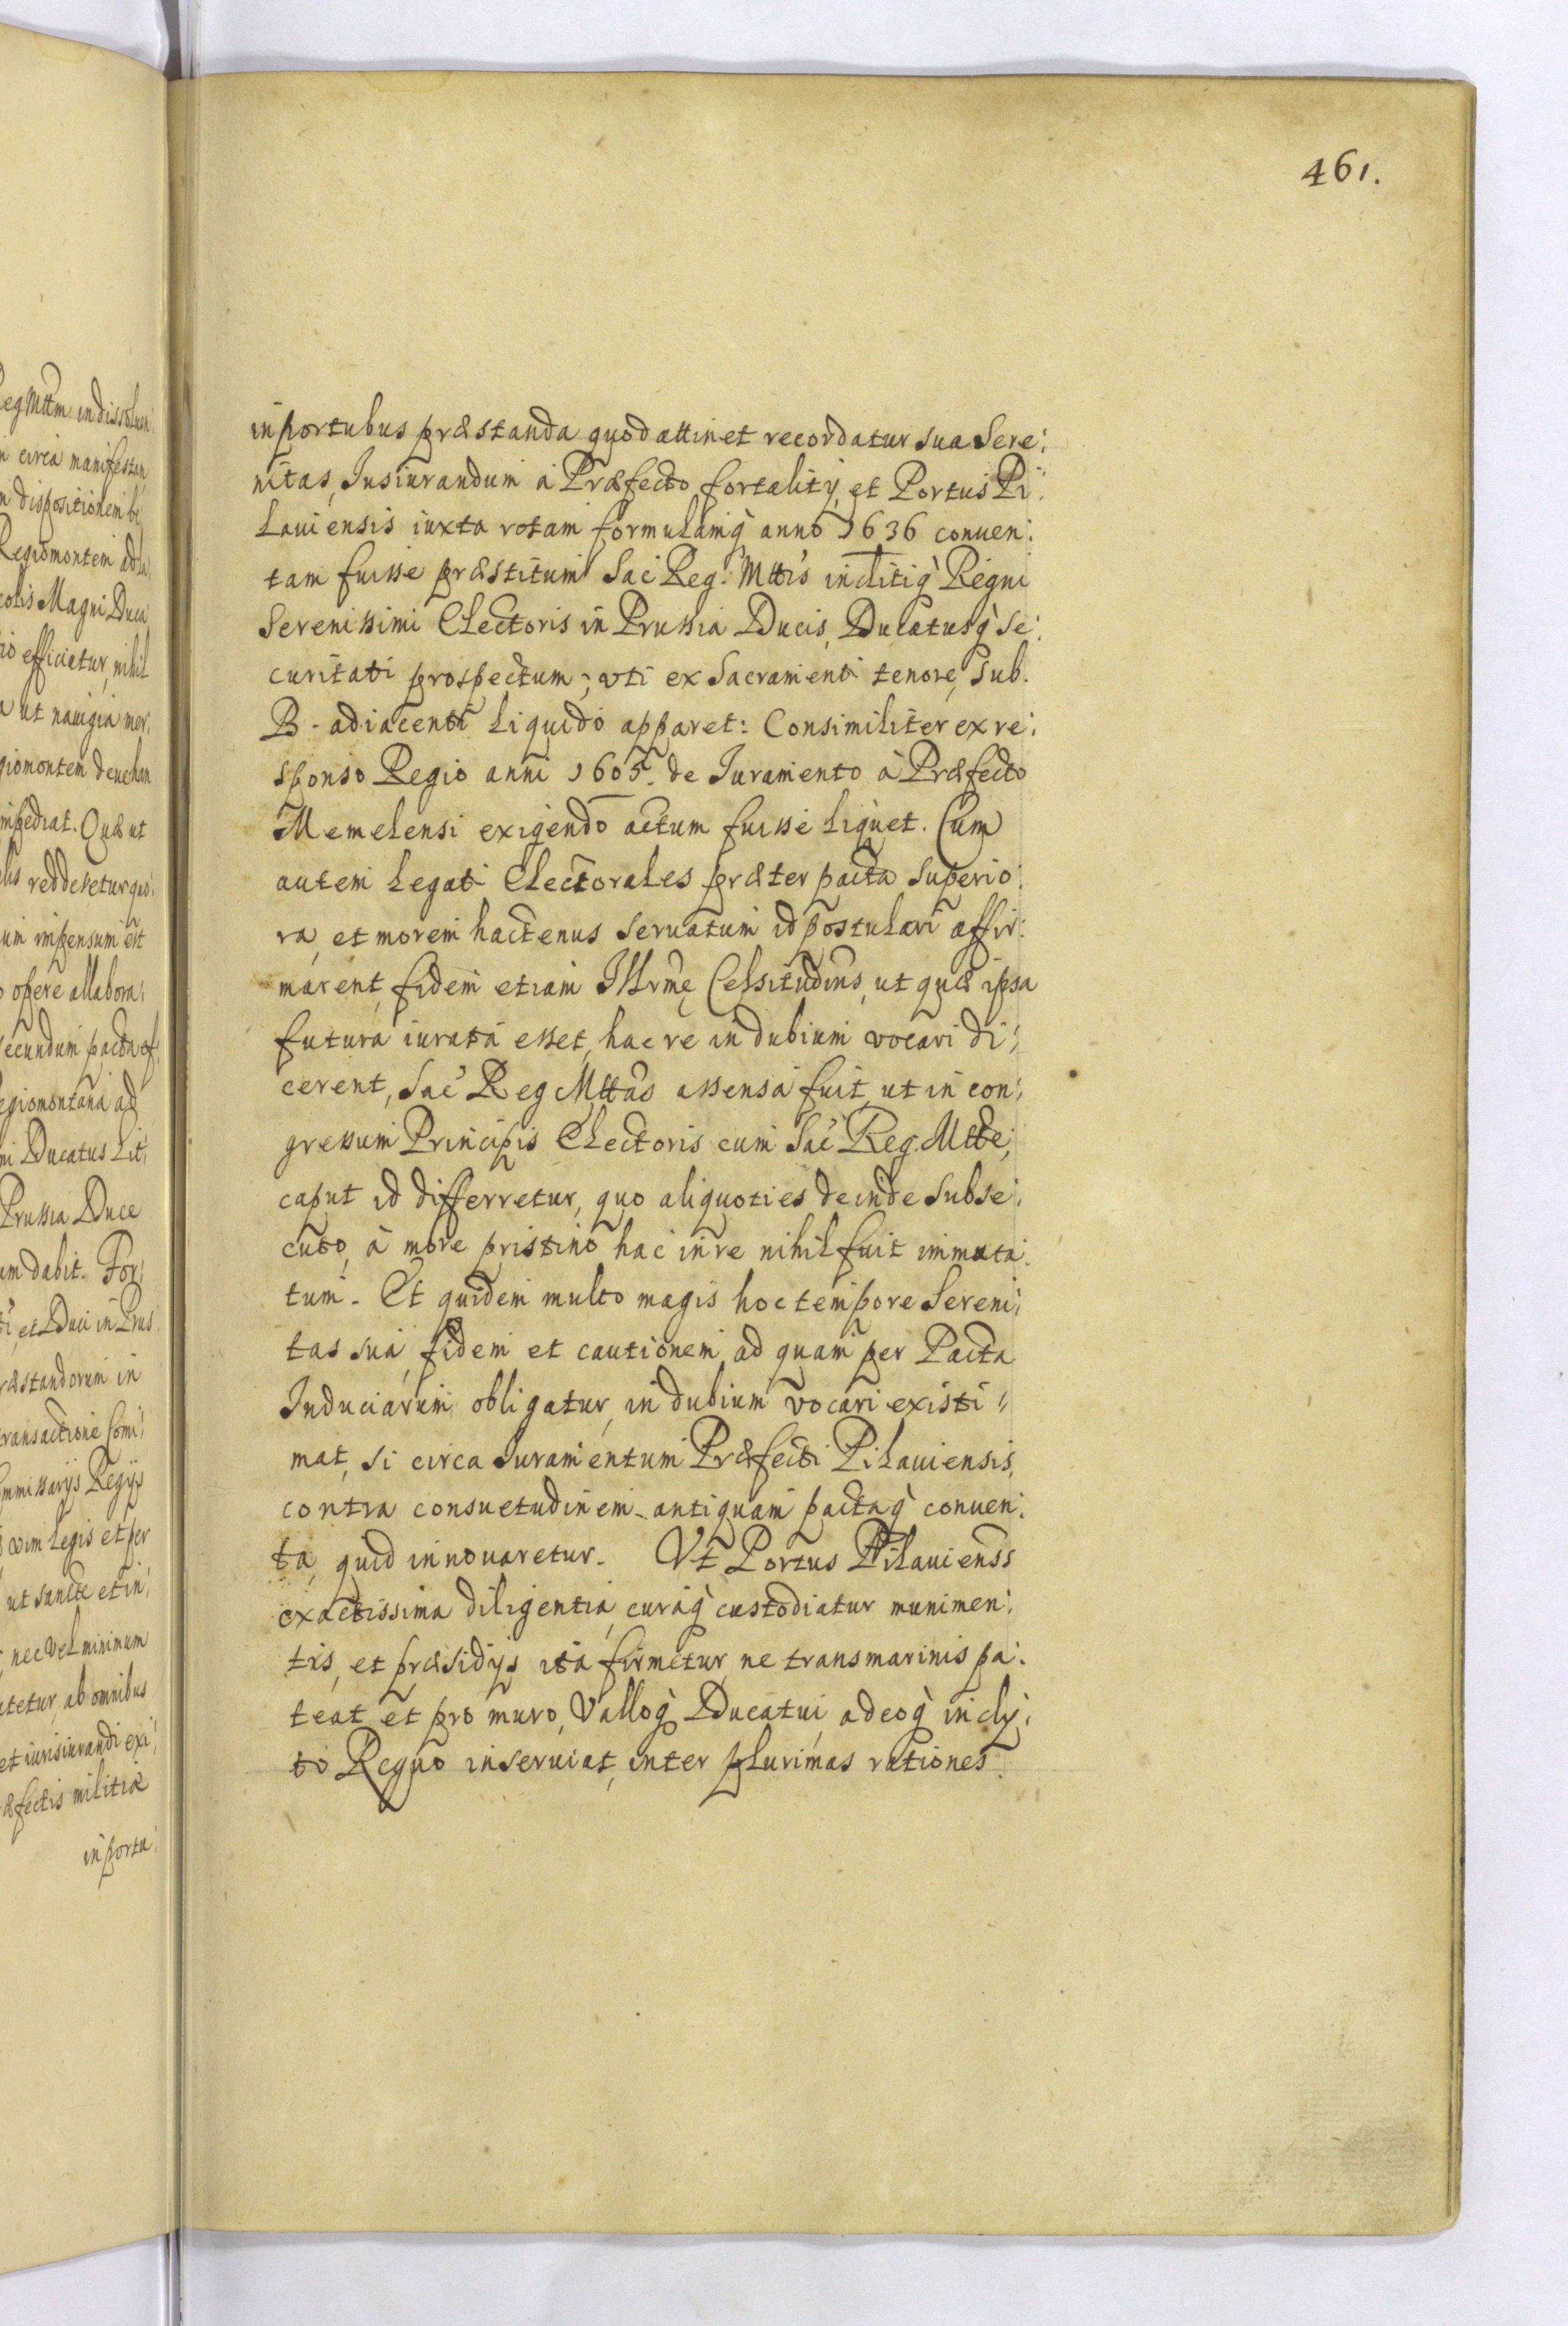 461.
in portubus præstanda quod attinet recordatur sua Sere:
nitas, Iusiurandum à Præfecto fortalitij et Portus Pi:
lauiensis iuxta rotam formulamq̀ anno 1636 conuen:
tam fuisse præstitum Sac Reg. Mttis inclitiq̀ Regni
Serenissimi Electoris in Prussia Ducis, Ducatusq̀ se:
curitati prospectum; vti ex Sacramenti tenore, sub.
B. adiacenti liquido apparet: Consimiliter ex re:
sponso Regio anni 1605. de Iuramento à Præfecto
Memelensi exigendo actum fuisse liquet. Cum
autem legati Electorales præter pacta superio:
ra, et morem hactenus seruatum id postulari affir:
marent, fidem etiam Illrmę Celsitudinis, ut quæ ipsa
futura iurata esset, hac re in dubium vocari di:
cerent, Sac Reg Mttas assensa fuit, ut in con:
gressum Principis Electoris cum Sac Reg. Mtte,
caput id differretur, quo aliquoties deinde subse:
cuto, à more pristino hac in re nihil fuit immuta:
tum. Et quidem multo magis hoc tempore Sereni:
tas sua, fidem et cautionem ad quam per Pacta
Induciarum obligatur, in dubium vocari existi:
mat, si circa Iuramentum Præfecti Pilauiensis,
contra consuetudinem antiquam pactaq̀ conuen:
ta, quid innouaretur. Vt Portus Pilauienss
exactissima diligentia, curaq̀ custodiatur munimen:
tis, et præsidijs ita firmetur, ne transmarinis pa:
teat et pro muro, Valloq̀ Ducatui, adeoq̀ incly:
to Regno inseruiat, inter plurimas rationes
eg Mttm indissoluen:
circa manifestam
dispositionem
Regiomontem
Magni Duca
efficiatur, nihil
ut nauigia mer:
giomontem deuehan
mpediat. Quæ ut
redderetur
um impensum est
opere allabora:
secundum pacta
egiomontana ad
Ducatus Lit:
Prussia Duce
um dabit. For:
et Duci in Prus
ræstandorum in
ransactione Comi:
mmissarijs Regijs
vim legis et per
ut sancte et in:
nec vel minimum
tetur, ab omnibus
et iurisiurandi exi:
æfectis militiæ
in portu: